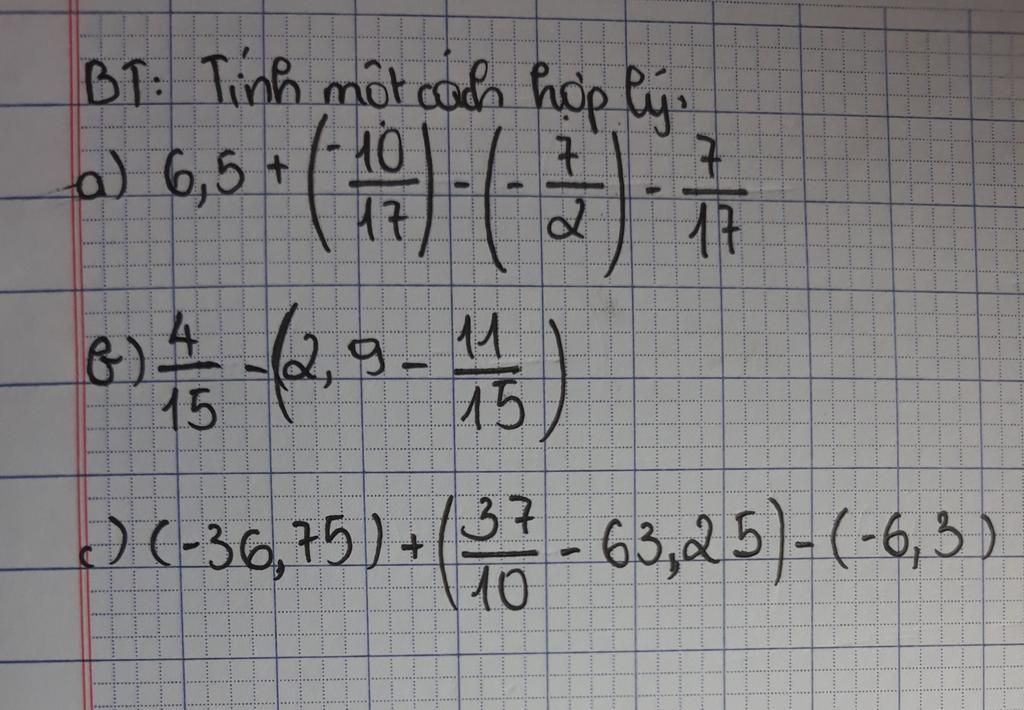 BT: Tính một cách hợp lý.
a) 6,5 + (-10/17) - (-7/2) - 7/17
b) 4/15 - (2,9 - 11/15)
c) (-36,75) + (37/10 - 63,25) - (-6,3)